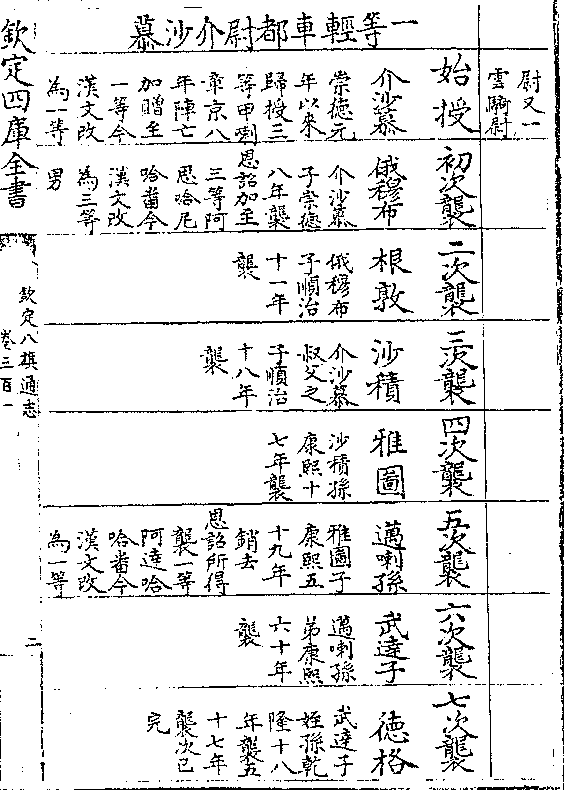 尉又一
雲騎尉
始授
介沙慕
崇德元
年以來
歸授三
等甲喇
章京八
年陣亡
加贈至
一等今
漢文改
為一等
一等輕車都尉介沙慕
初次襲
俄穆布
介沙慕
子崇德
八年襲
恩詔加至
三等阿
思哈尼
哈畨今
漢文改
為三等
男
二次襲
根敦
俄穆布
子順治
十一年
襲
三次襲
沙積
介沙慕
叔父之
子順治
十八年
襲
四次襲
雅圖
沙積孫
康熙十
七年襲
五次襲
邁喇孫
雅圖子
康熙五
十九年
銷去
恩詔所得
襲一等
阿達哈
哈畨今
漢文改
為一等
六次襲
武達子
邁喇孫
弟康熙
六十年
襲
七次襲
德格
武達子
姪孫乾
隆十八
年襲五
十七年
襲次已
完
欽定四庫全書
欽定八旗通志
卷三百一
二